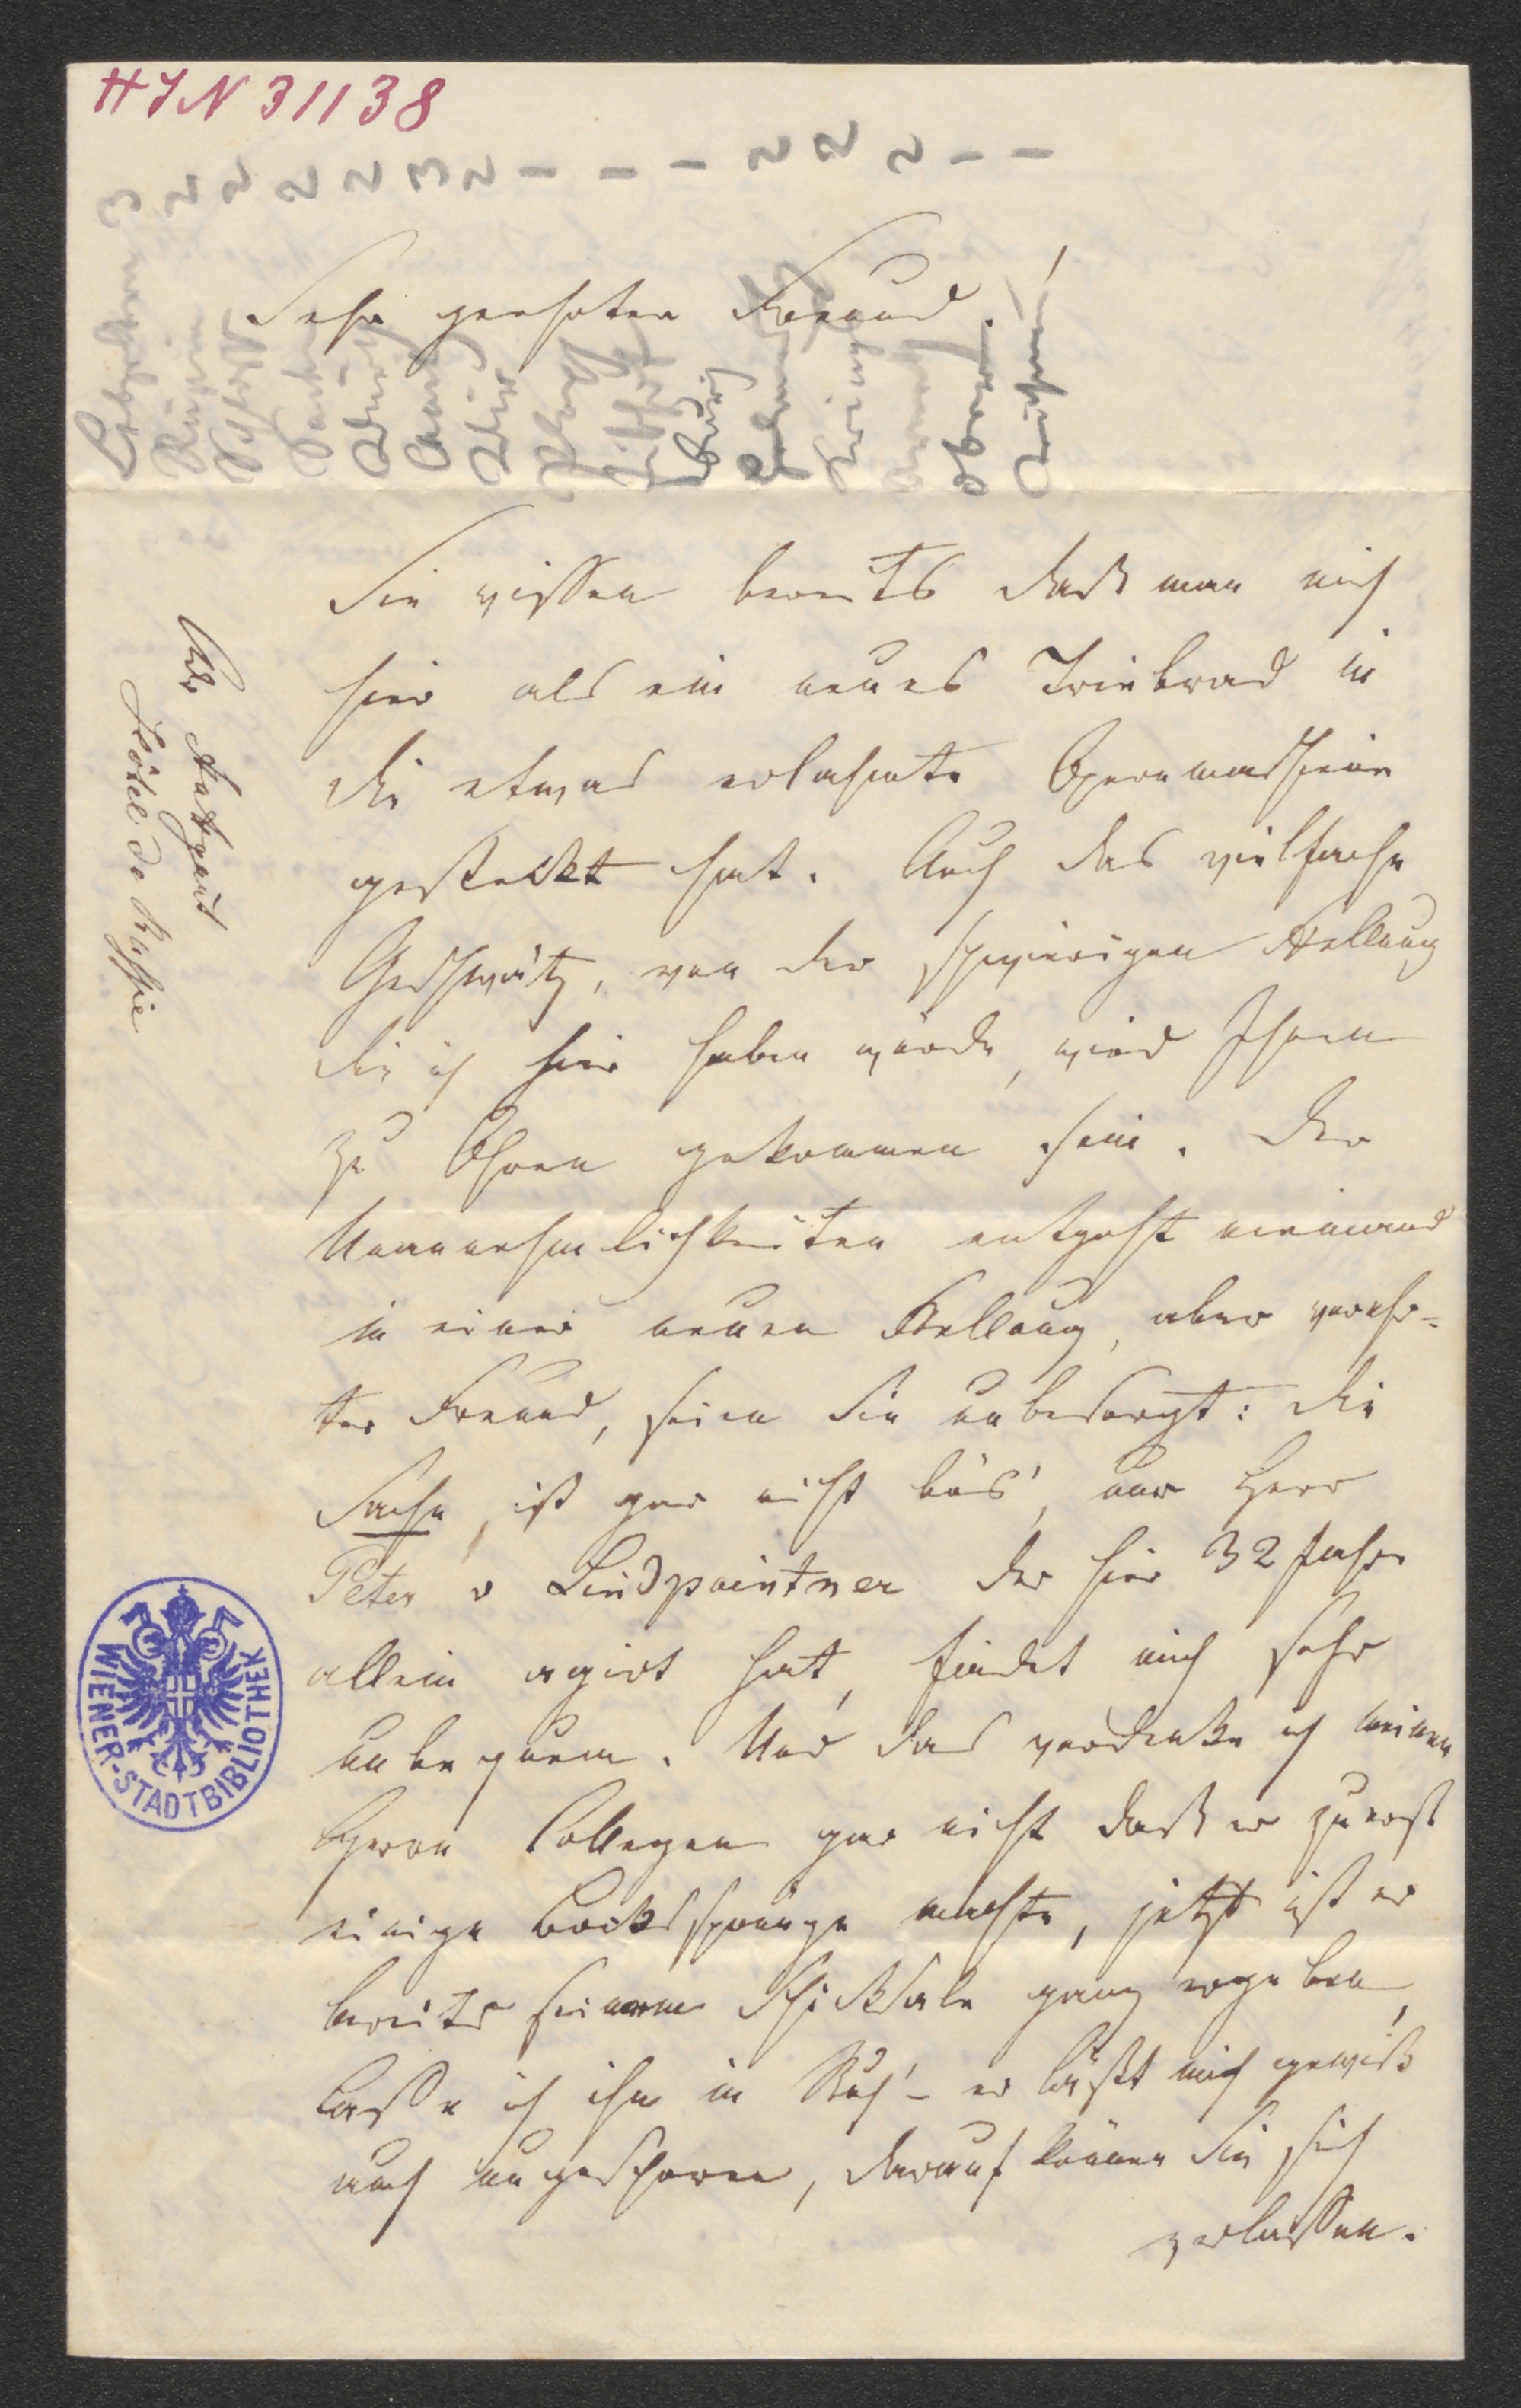 HIN 31138
3 2 2 2 2 3 2 – – – 2 2 2 – –
Sehr geehrter Freund!
Sie wissen bereits daß man mich
hier als ein neues Triebrad in
die etwas erlahmte Opernmaschine
gesteckt hat. Auch das vielfache
Geschwätz, von der schwierigen Stellung
die ich hier haben würde, wird Ihnen
zu Ohren gekommen sein. Der
Unannehmlichkeiten entgeht niemand
in einer neuen Stellung, aber verehr-
ter Freund, seien Sie unbesorgt: die
Sache, ist gar nicht bös', nur Herr
Peter v Lindpaintner der hier 32 Jahre
allein agirt hat, findet mich sehr
unbequem. Und das verdenke ich meinem
Herrn Collegen gar nicht daß er zuerst
einige Bockssprünge machte, jetzt ist er
bereits seinem Schicksale ganz ergeben,
lasse ich ihn in Ruh' – er läßt mich gewiß
auch ungeschoren, darauf können Sie sich
verlassen.
Stuttgart
Hôtel de Russie
WIENER-STADTBIBLIOTHEK